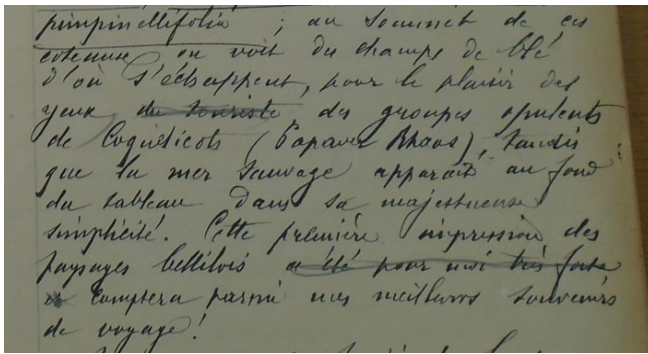 pimpinellifolia ; au sommet de ces
coteaux on voit du champs de blé
d'où s'échappent, pour le plaisir des
yeux du touriste des groupes opulents
de Coquelicots (Papaver Rhoas), tandis
que la mer sauvage apparait au fond
du tableau dans sa majestueuse
simplicité. Cette première impression des
paysages bellilois a été pour moi très forte
et comptera parmi mes meilleurs souvenirs
de voyage !